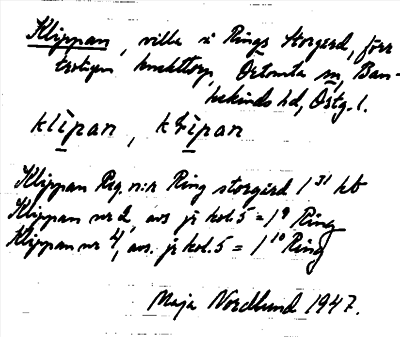 Klippan, villa i Rings Storgård, förr
troligen knekttorp, Örtomta sn, Ban-
kekinds hd, Östg. l.
klìpan, klìpan
Klippan Reg. n:r Ring storgård 1 31 hb
Klippan nr 2, avs jr kol. 5 = 1 9 Ring
Klippan nr 4, avs. jr kol. 5 = 1 10 Ring
Maja Nordlund 1947.